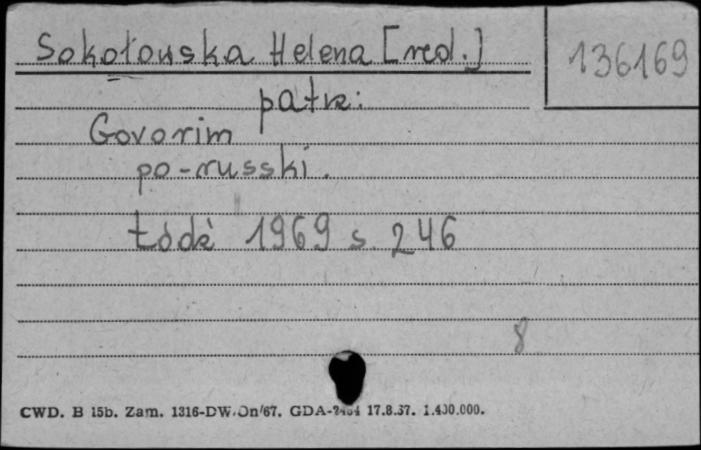 Sokołowska Helena [red.]
136169
patrz:
Govorim
po-russki.
Łódź 1969 s. 246
8
CWD. B 15b. Zam. 1316-DW/On/67. GDA- 17.8.67. 1.400.000.